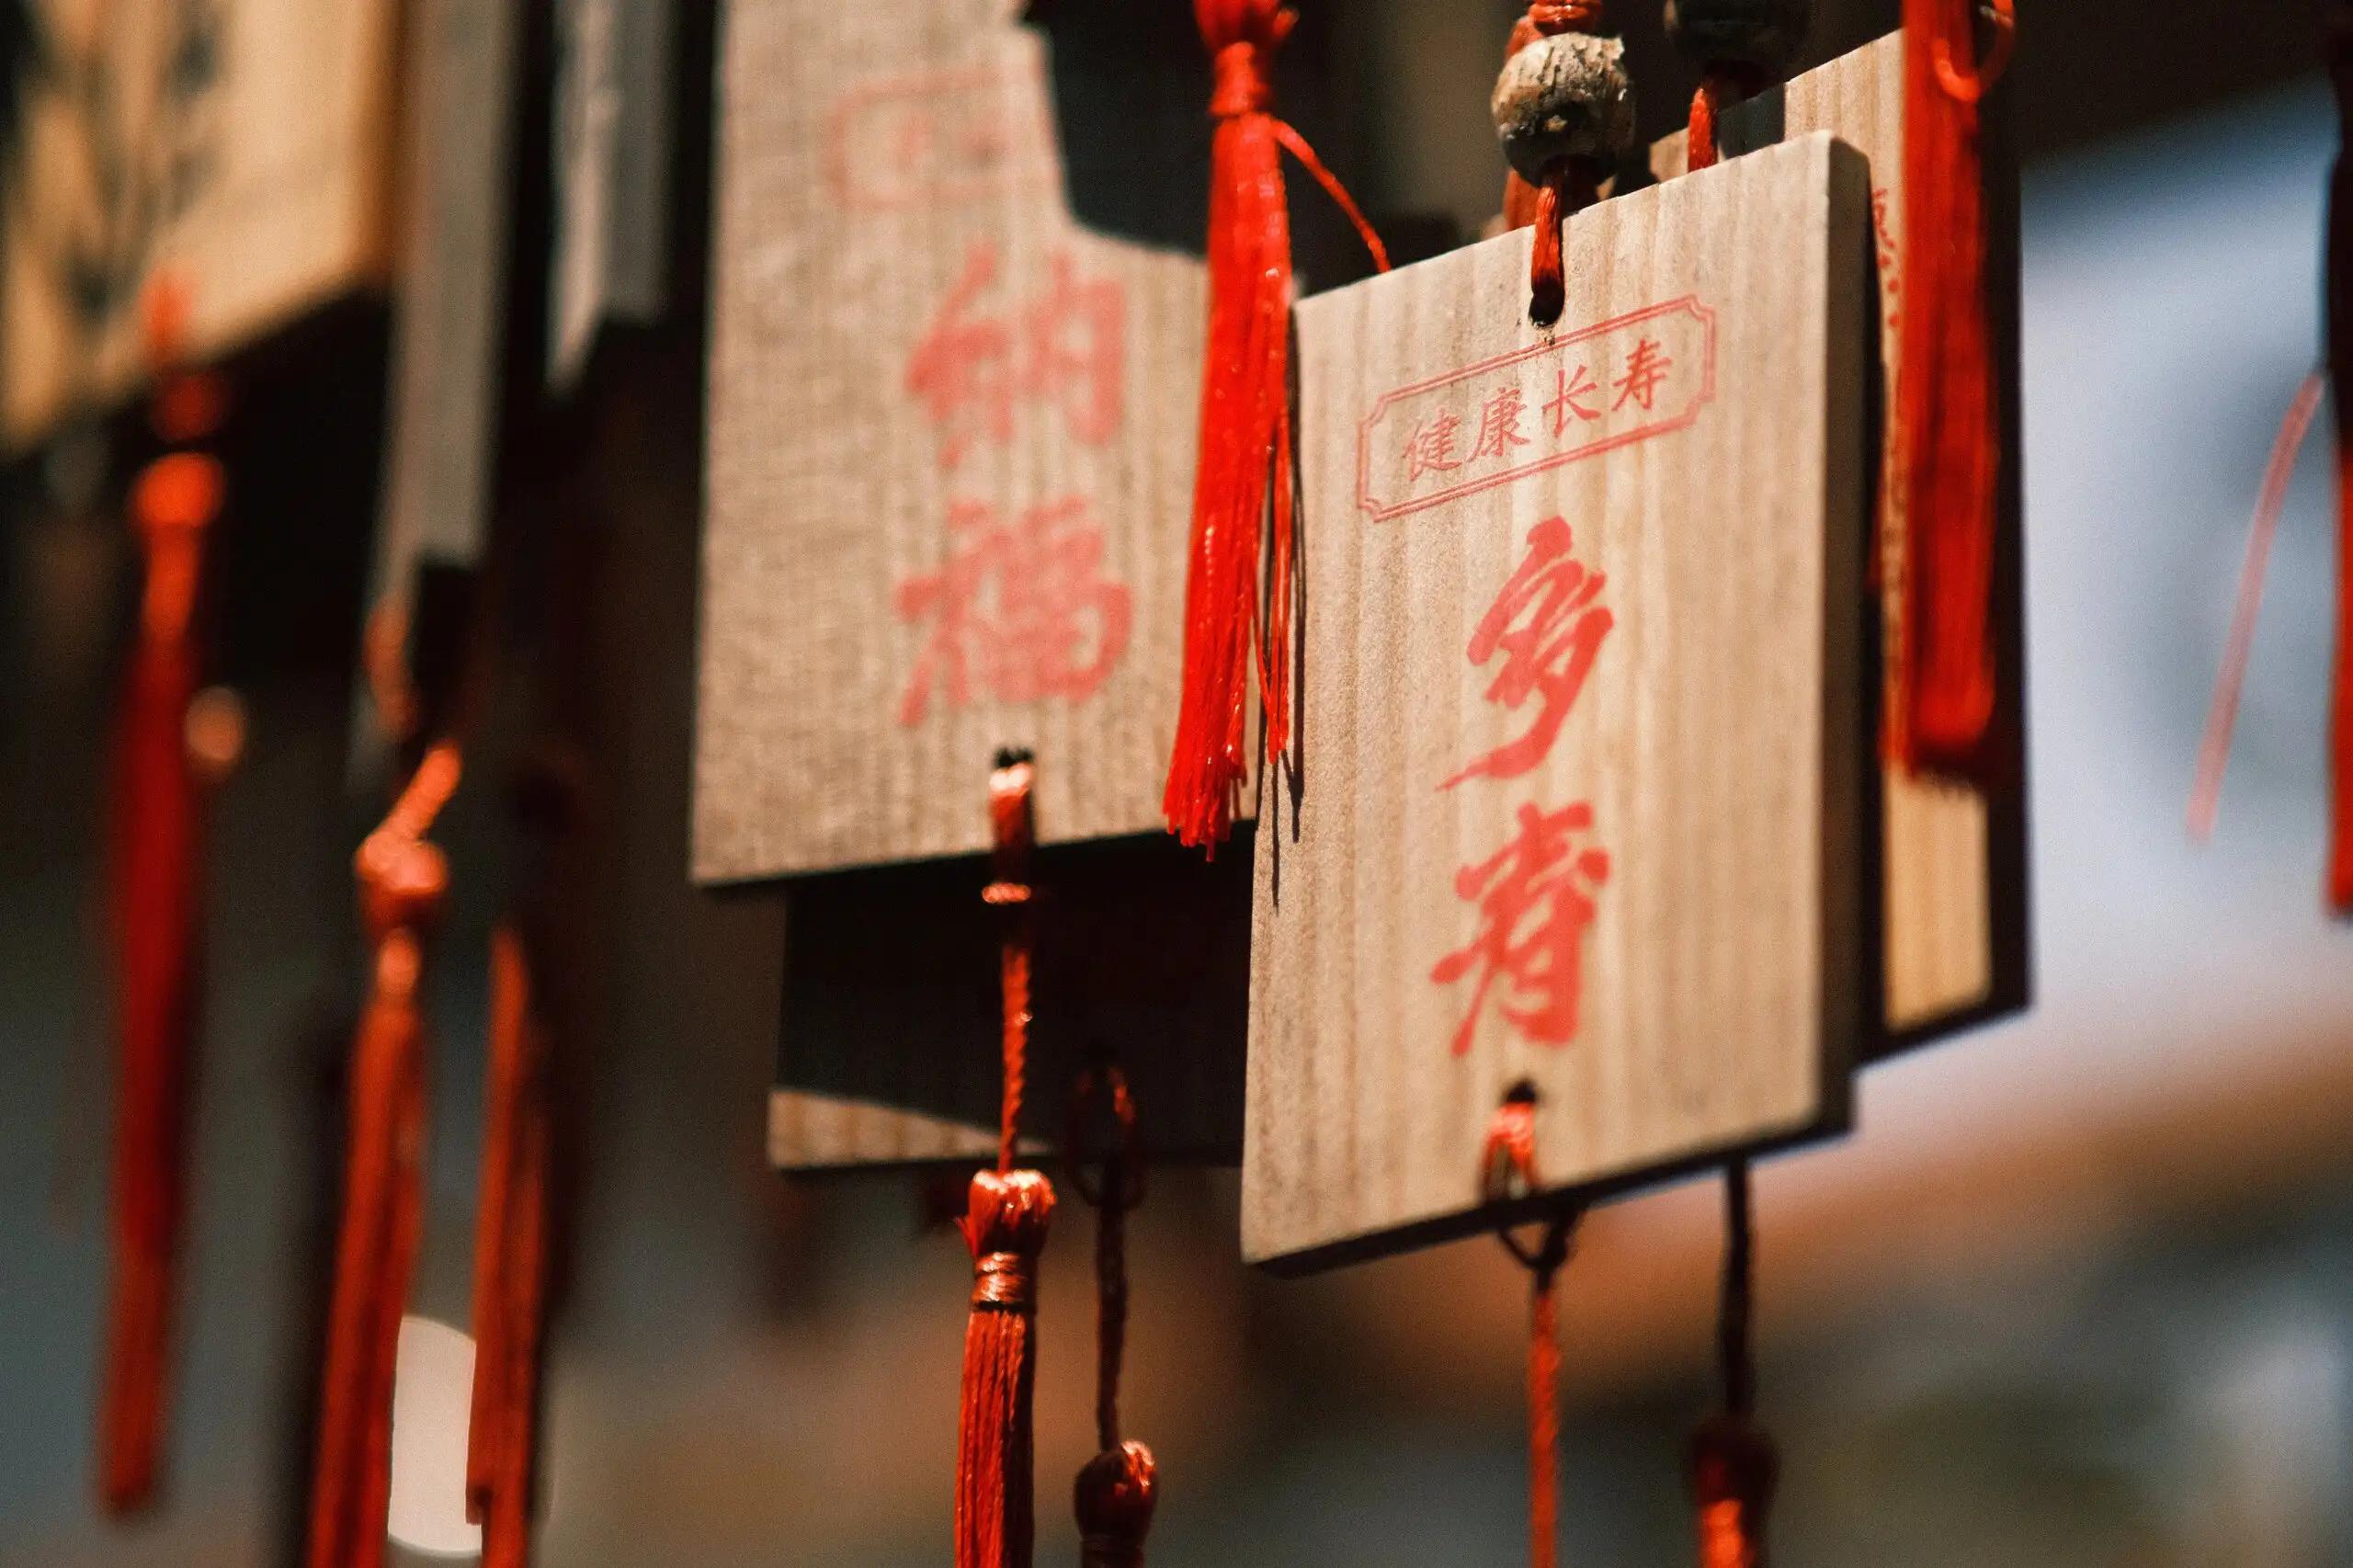 健康长寿
多寿
纳福